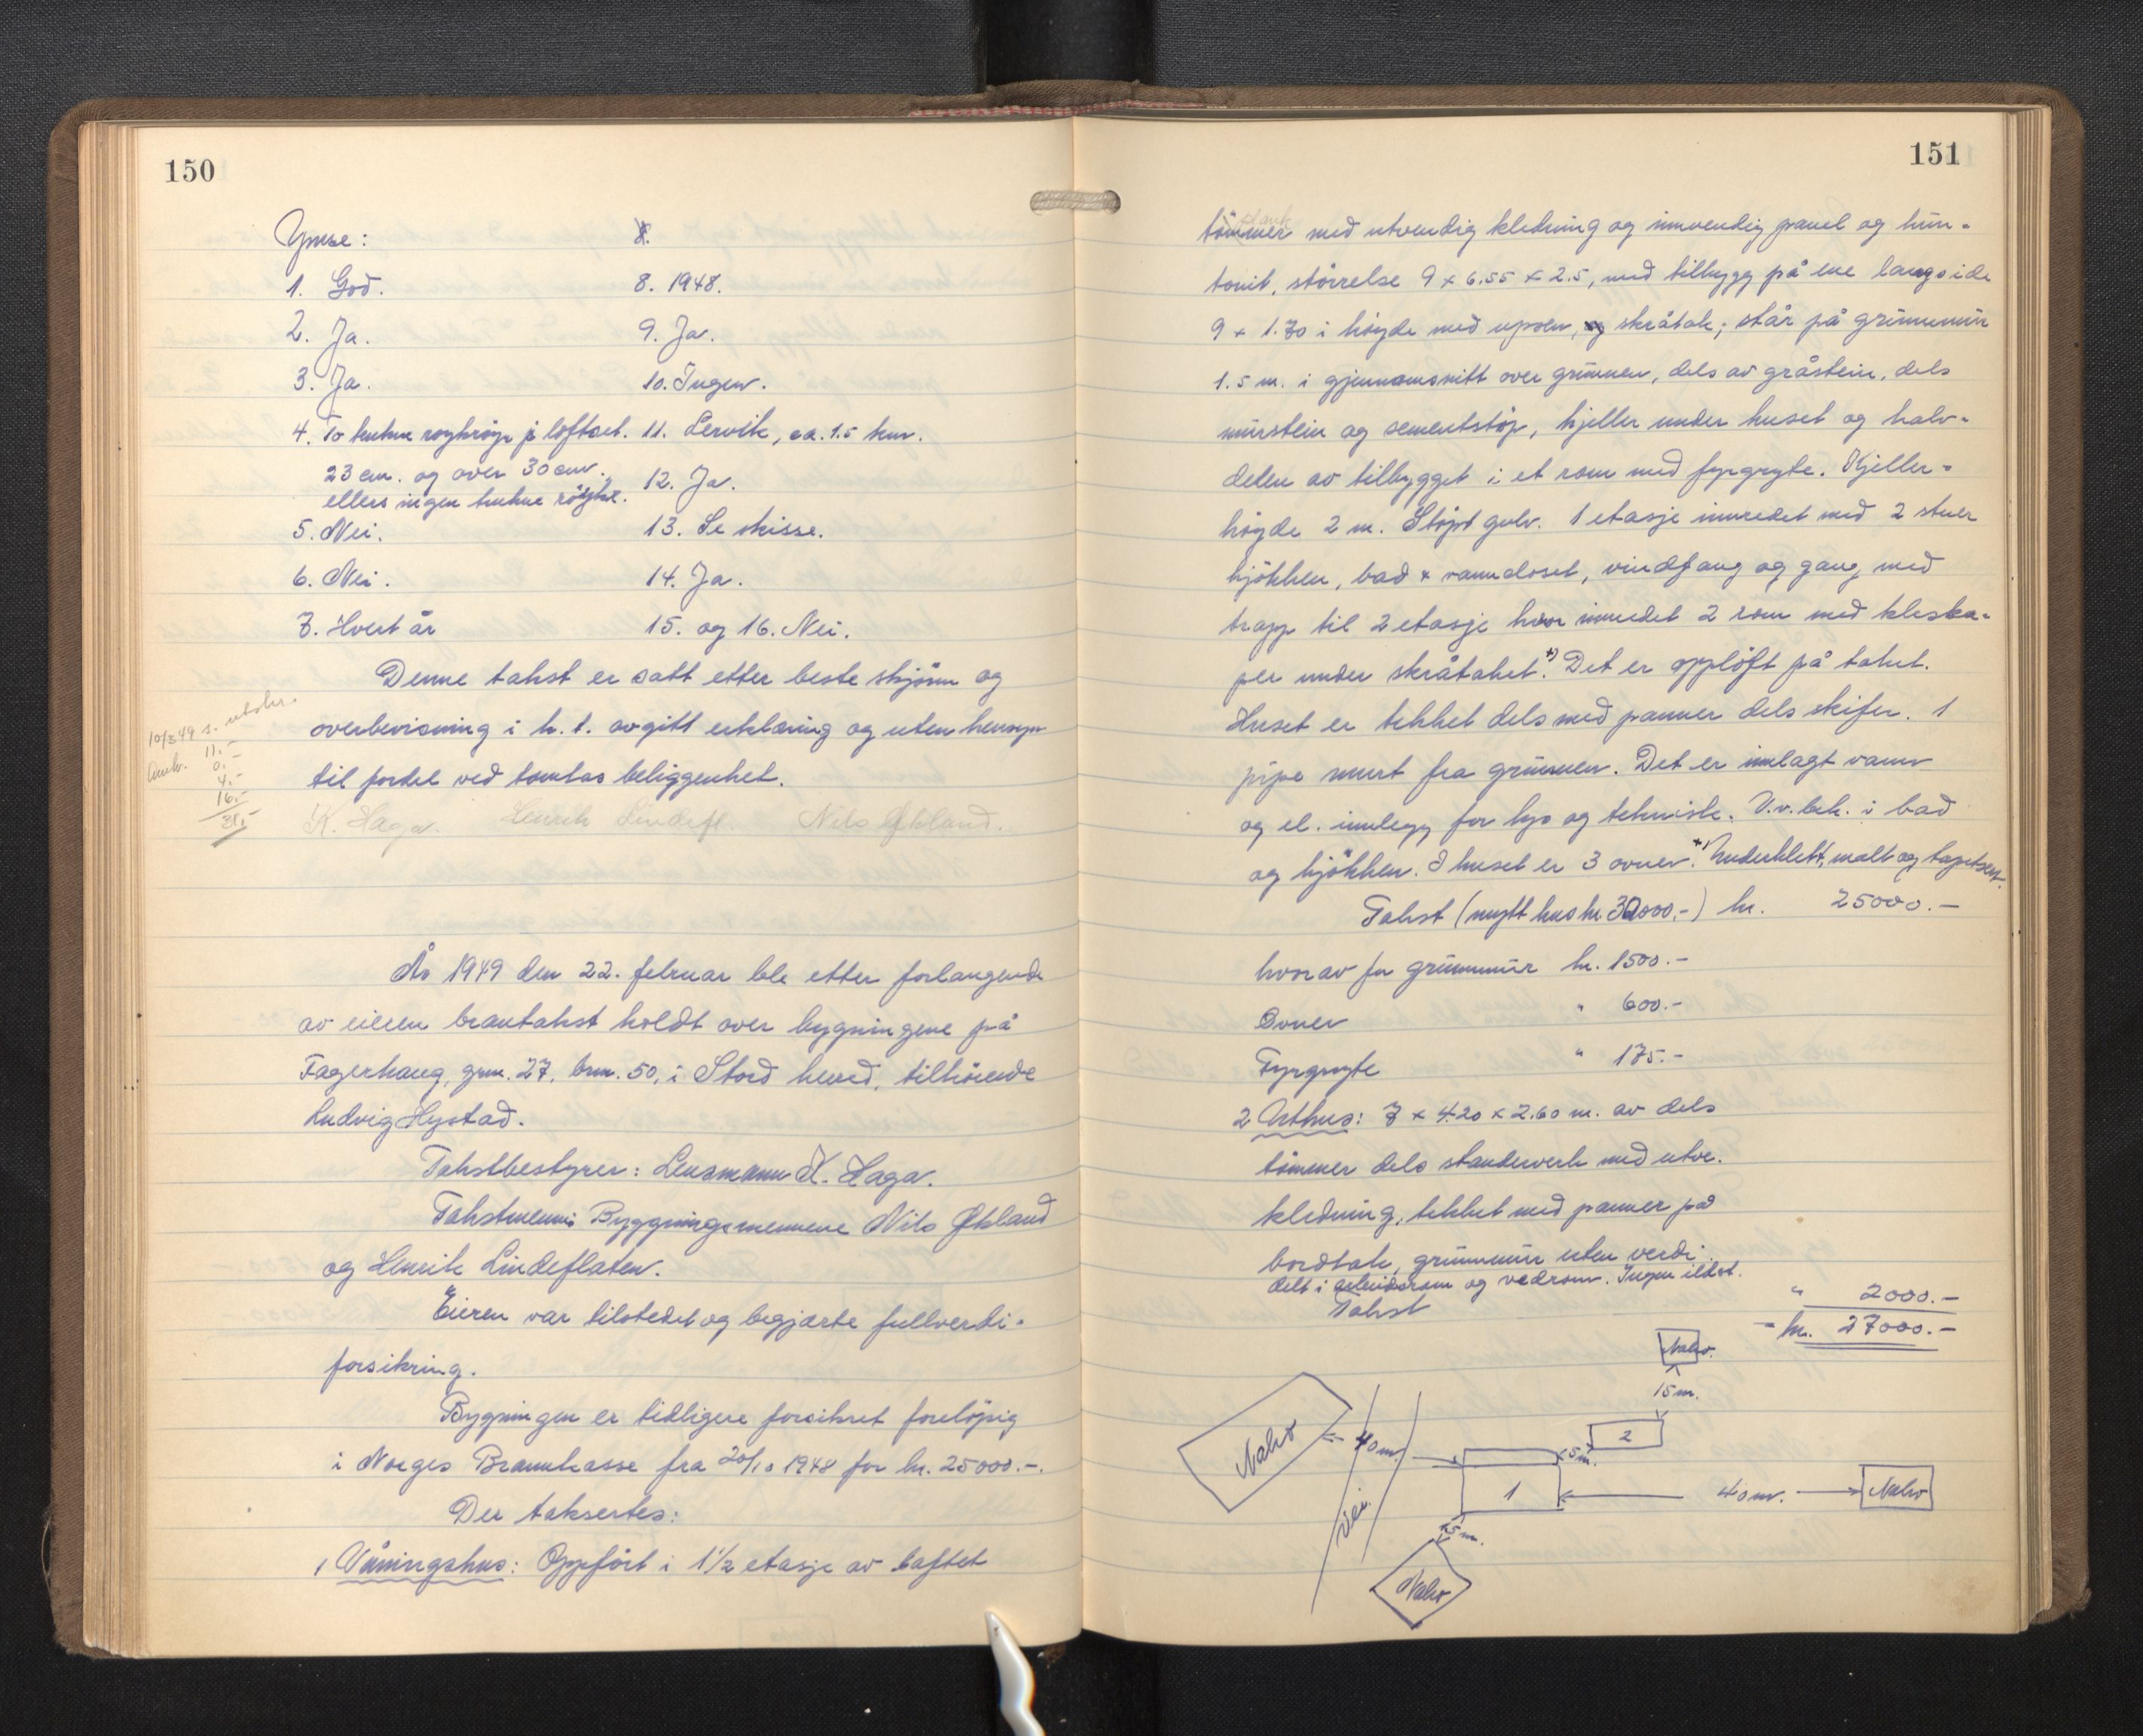 150
Ymse:
1. God.
2. Ja.
3. Ja.
4. To kubne røykrør på loftset.
23 cm. og over 30 cm.
ellers ingen
5. Nei.
6. Nei.
7. Hvert år
8. 1948.
9. Ja.
10. Ingen.
11. Lervik, ca. 1.5 km.
12. Ja.
13. Se skisse.
14. Ja.
15. og 16. Nei.
Denne takst er satt etter beste skjønn og
overbevisning i h. t. avgitt erklæring og uten hensyn
til fordel ved tomtas beliggenhet.
10/3 49 s. utskr.
11.-
0.-
4.-
16.-
31.-
K. Haga. Henrik Lindefl. Nils Økland.
År 1949 den 22. februar ble etter forlangende
av eieren brantakst holdt over bygningene på
Fagerhaug, gnr. 27, brn. 50, i Stord herred, tilhörende
Ludvig Hystad.
Takstbestyrer: Lensmann K. Haga.
Takstmenn: Byggningsmennene Nils Økland
og Henrik Lindeflaten.
Eieren var tilstedet og begjærte fullverdi-
forsikring.
Bygningen er tidligere forsikret forelöpig
i Norges Brannkasse fra 20/10 1948 for kr. 25000.-.
Der taksertes:
1 Våningshus: Oppfört i 1½ etasje av laftet
151
plank
tömmer med utvendig kledning og innvendig panel og hun-
tonit, störrelse 9 x 6.55 x 2.5, med tilbygg på ene langside
9 x 1.70 i höyde med upsen, skråtak; står på grunnmur
1.5 m. i gjennomsnitt over grunnen, dels av gråstein, dels
murstein og sementstöp, kjeller under huset og halv-
delen av tilbygget i et rom med fyrgryte. Kjeller-
höyde 2 m. Stöpt gulv. 1 etasje innredet med 2 stuer
kjökken, bad & vannkloset, vindfang og gang med
trapp til 2 etasje hvor innredet 2 rom med kleska-
per under skråtaket. +) Det er opplöft på taket.
Huset er tekket dels med panner dels skifer. 1
pipe murt fra grunnen. Det er innlagt vann
og el. innlegg for lys og teknisk. V.v.bek. i bad
og kjökken. I huset er 3 ovner. +) Underklett, malt og tapetsert.
Takst (nytt hus kr 30000,-) kr. 25000.-
hvorav for grunnmur kr. 1500.-
Ovner " 600.-
Fyrgryte " 175.-
2 Uthus: 7 x 4.20 x 2.60 m. av dels
tömmer dels standerverk med utv.
kledning, tekket med panner på
bordtak, grunnmur uten verdi.
delt i arbeidsrom og vedrom. Ingen ildst.
Takst " 2000.-
kr. 27000.-
Nabo.
15 m.
Nabo
40 m.
2
5 m.
1
40 m.
Nabo
Vei.
15 m.
Nabo